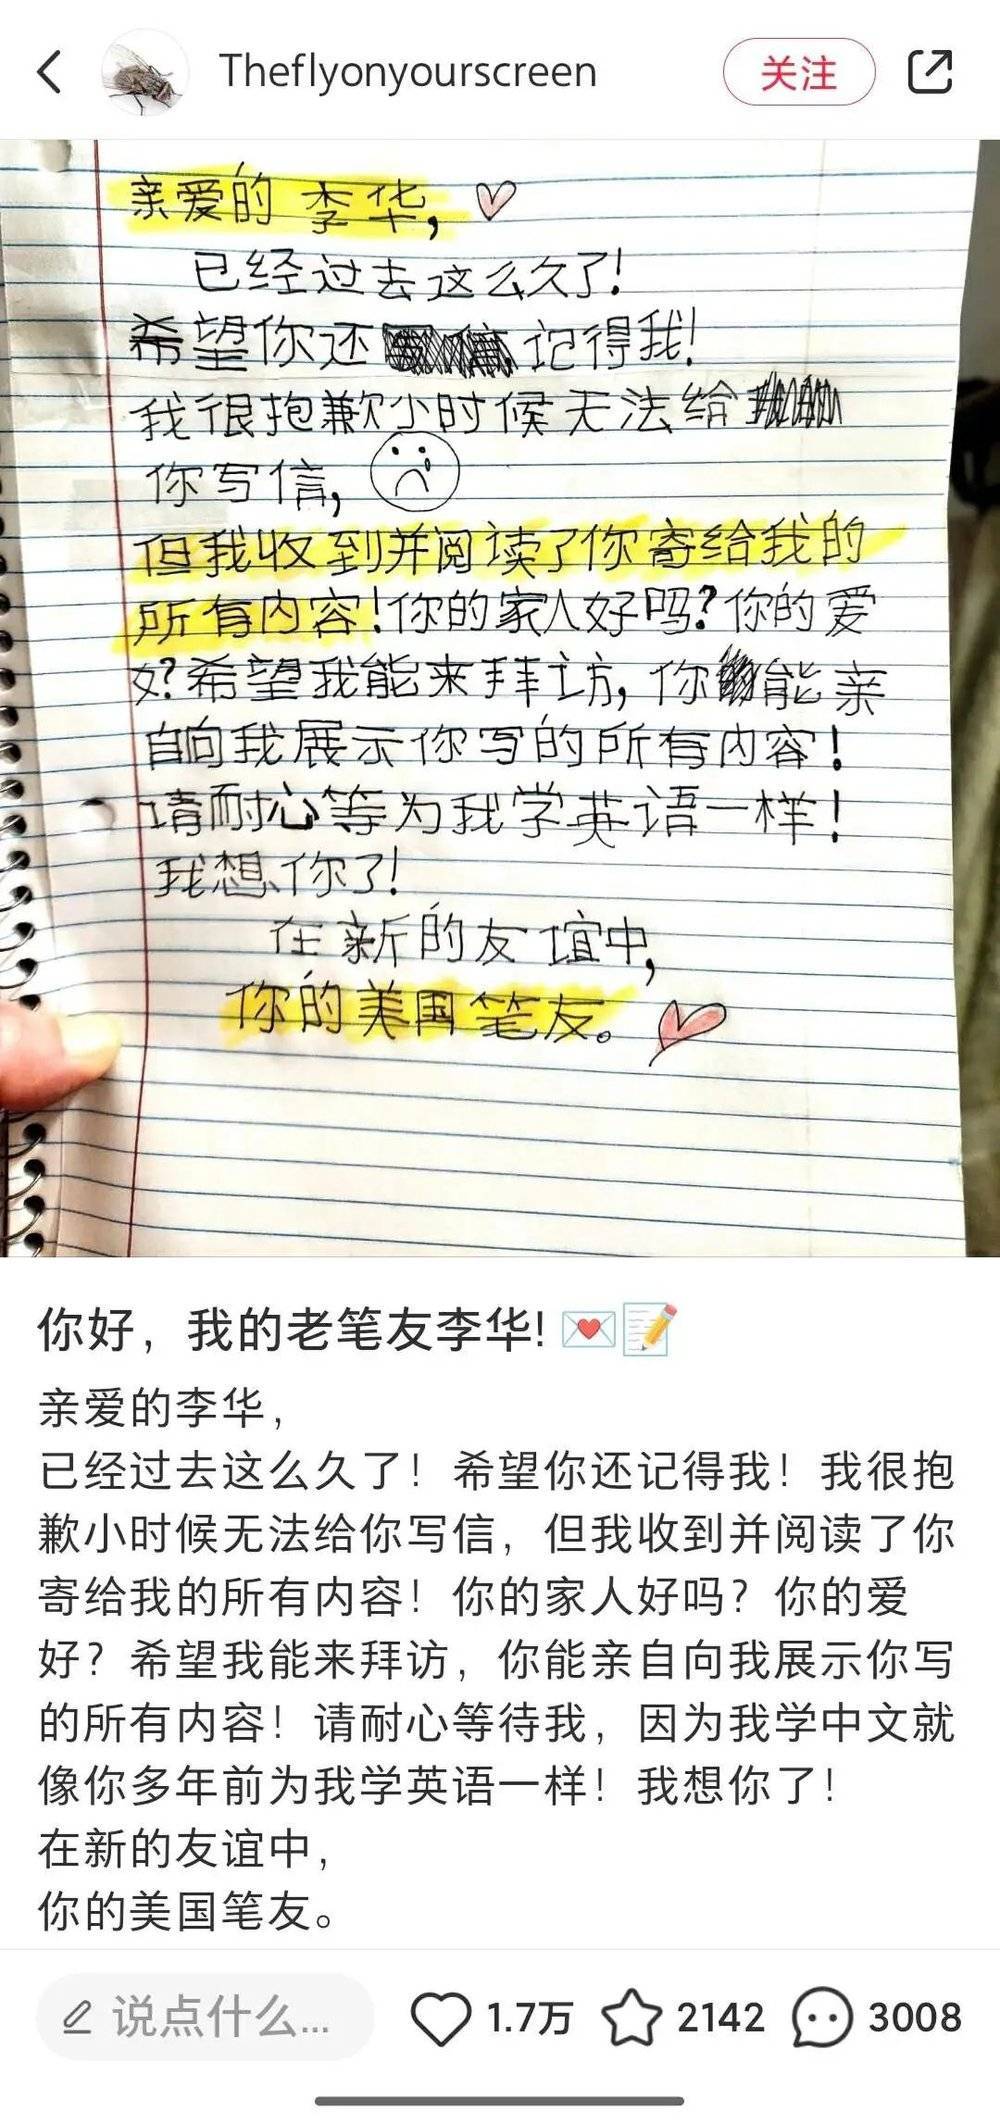 Theflyonyourscreen
关注
亲爱的 李华,
已经过去这么久了!
希望你还 记得我!
我很抱歉少时候无法给
你写信,
但我收到并阅读了你寄给我的
所有内容!你的家人好吗?你的爱
好?希望我能来拜访,你能亲
自向我展示你写的所有内容!
请耐心等为我学英语一样!
我想你了!
在新的友谊中,
你的美国笔友。
你好，我的老笔友李华! 💌📝
亲爱的李华，
已经过去这么久了！希望你还记得我！我很抱
歉小时候无法给你写信，但我收到并阅读了你
寄给我的所有内容！你的家人好吗？你的爱
好？希望我能来拜访，你能亲自向我展示你写
的所有内容！请耐心等待我，因为我学中文就
像你多年前为我学英语一样！我想你了！
在新的友谊中，
你的美国笔友。
说点什么...
1.7万
2142
3008